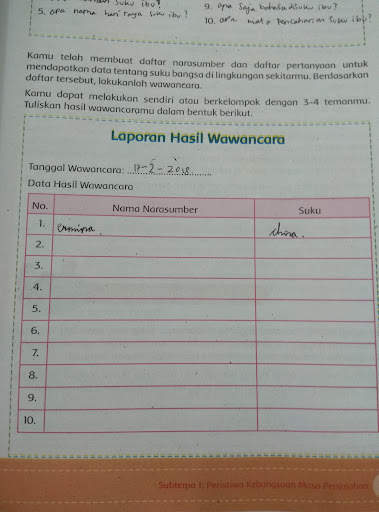 suku ibu?
5. apa nama hari raya suku ibu?
9. apa saja bahasa disuku ibu?
10. apa mata pencaharian suku ibu?
Kamu telah membuat daftar narasumber dan daftar pertanyaan untuk
mendapatkan data tentang suku bangsa di lingkungan sekitarmu. Berdasarkan
daftar tersebut, lakukanlah wawancara.
Kamu dapat melakukan sendiri atau berkelompok dengan 3-4 temanmu.
Tuliskan hasil wawancaramu dalam bentuk berikut.
Laporan Hasil Wawancara
Tanggal Wawancara: 17-2-2018
Data Hasil Wawancara
No. Nama Narasumber Suku
1. ermina china.
2.
3.
4.
5.
6.
7.
8.
9.
10.
Subtema 1: Peristiwa Kebangsaan Masa Penjajahan